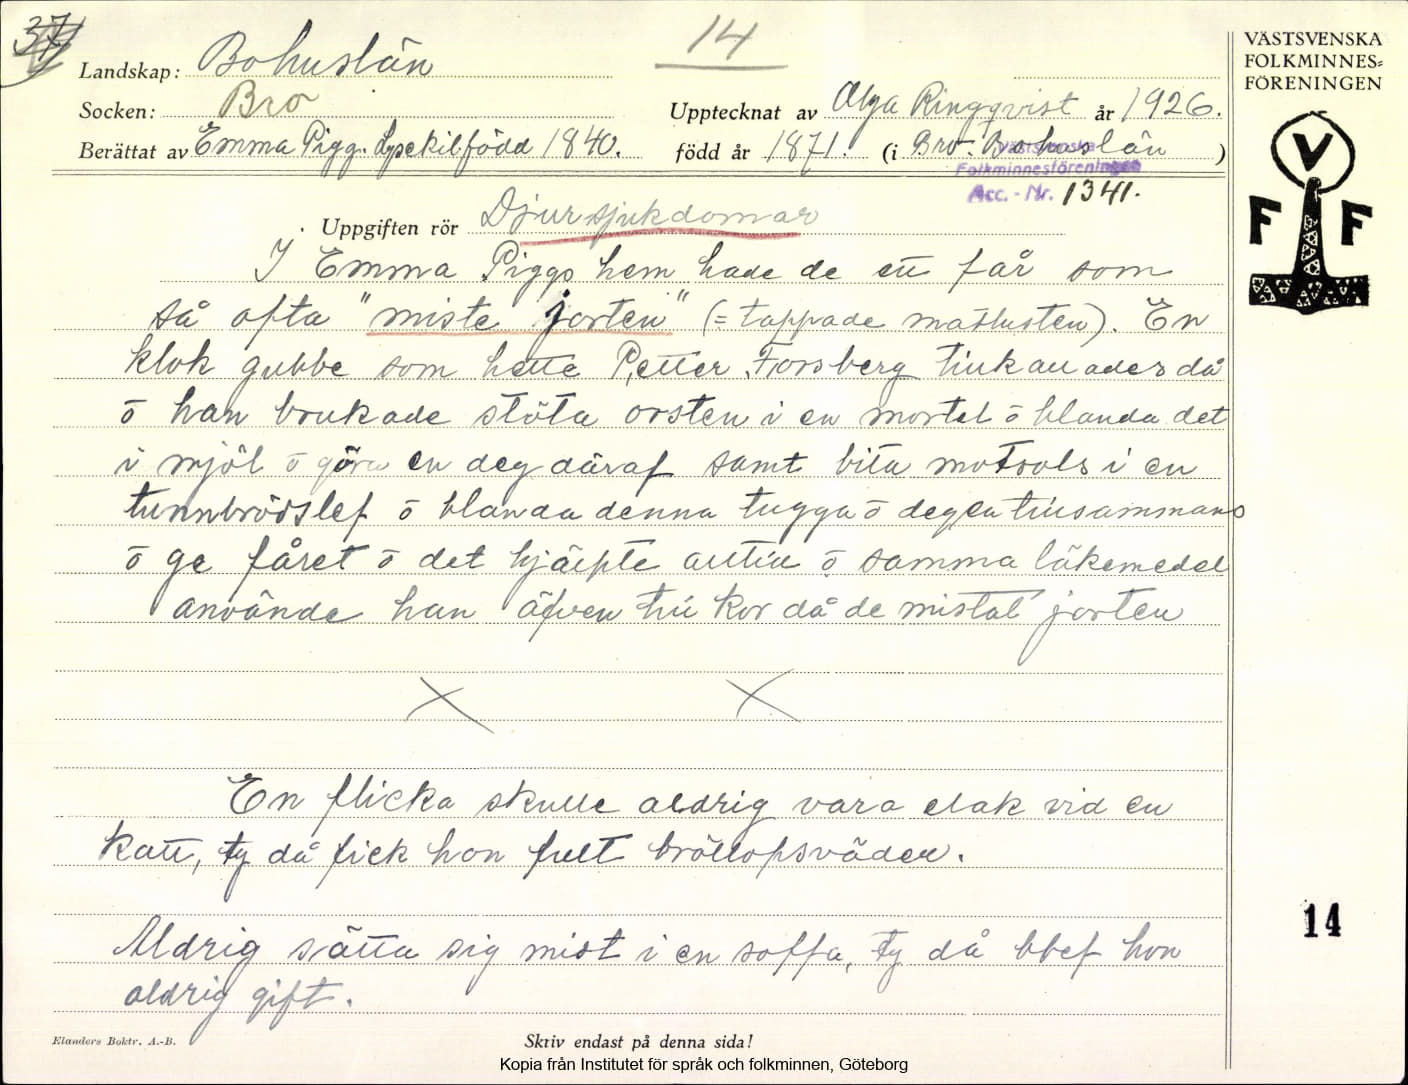 37
14
Landskap: Bohuslän
Socken: Bro
Upptecknat av Olga Ringqvist år 1926.
Berättat av Emma Pigg. Lysekil född 1840.
född år 1871. (i Bro. Bohuslän)
Västsvenska
Folkminnesföreningen
Acc. - Nr. 1341.
VÄSTSVENSKA
FOLKMINNES=
FÖRENINGEN
V
F F
Uppgiften rör Djursjukdomar
I Emma Piggs hem hade de ett får som
så ofta "miste jorten" (= tappade matlusten). En
klok gubbe som hette Petter Forsberg tillkallades då
ō han brukade stöta orsten i en mortel ō blanda det
i mjöl ō göra en deg däraf samt bita motsols i en
tunnbrödslef ō blanda denna tugga ō degen tillsammans
ō ge fåret ō det hjälpte alltid ō samma läkemedel
använde han äfven till kor då de mistat jorten
En flicka skulle aldrig vara elak vid en
katt, ty då fick hon fult bröllopsväder.
Aldrig sätta sig mist i en soffa, ty då blef hon
aldrig gift.
14
Elanders Boktr. A.-B.
Skriv endast på denna sida!
Kopia från Institutet för språk och folkminnen, Göteborg